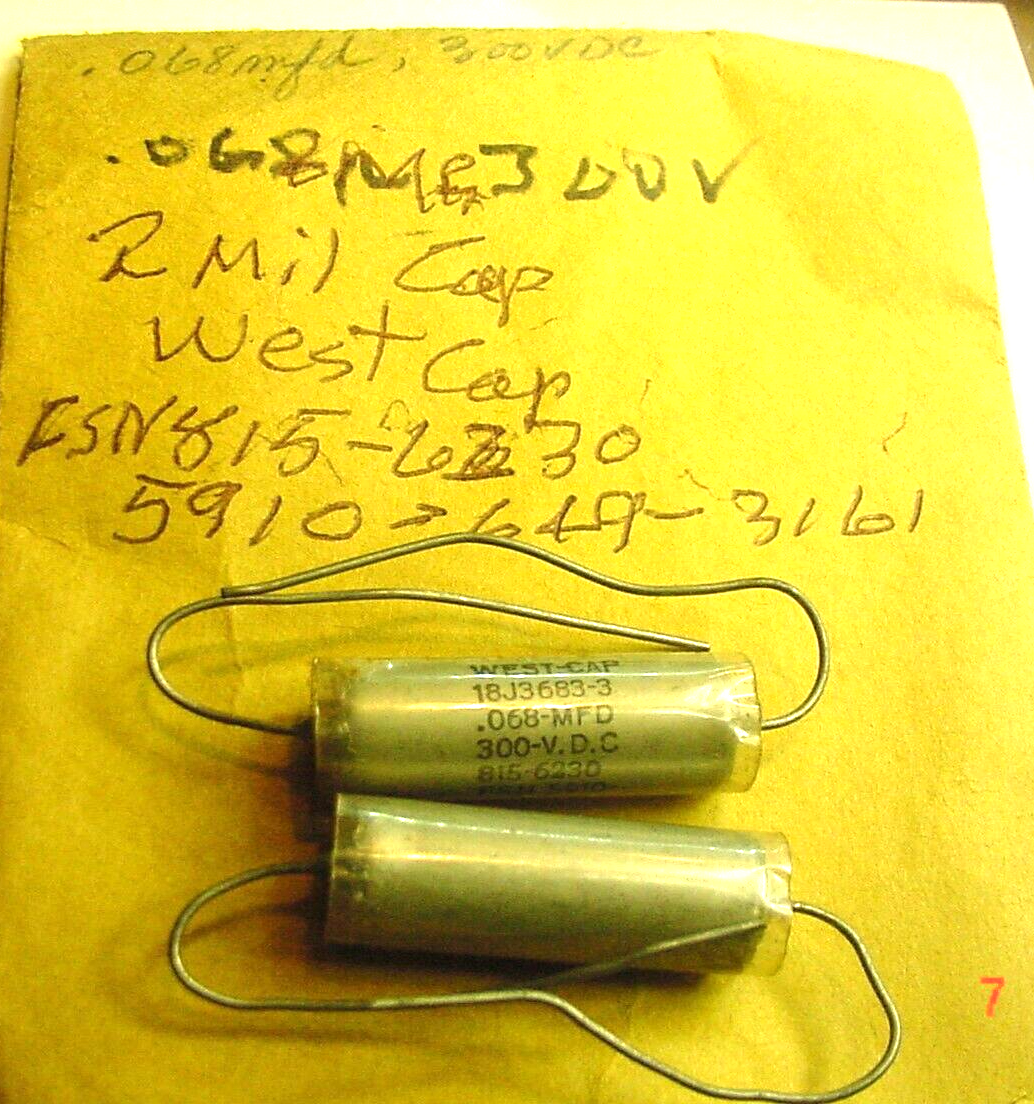 .068mfd, 300VDC
.068 300V
2 Mil Cap
West Cap
FSN 815-6230
5910-649-3161
WEST-CAP
18J3683-3
.068-MFD
300-V.D.C
815-6230
7